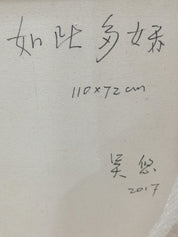 如此多娇
110×72cm
吴悠
2017